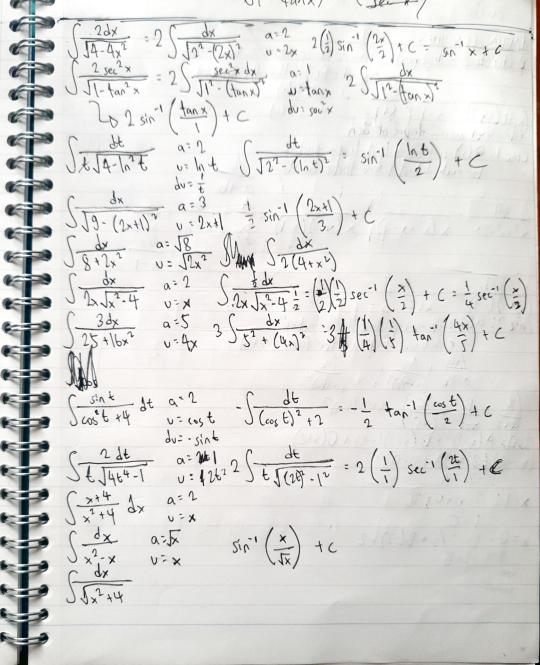 ∫ 2dx/√(4-4x²) = 2 ∫ dx/√(2²-(2x)²) a=2 u=2x 2(1/2) sin⁻¹(2x/2) + C = sin⁻¹ x + c
∫ 2 sec²x/√(1-tan²x) = 2 ∫ sec²x dx/√(1²-(tanx)²) a=1 u=tanx du=sec²x 2 ∫ dx/√(1²-(tanx)²)
↳ 2 sin⁻¹(tanx/1) + C
∫ dt/(t√(4-ln²t)) a=2 u=ln t du=1/t ∫ dt/√(2²-(lnt)²) = sin⁻¹(lnt/2) + C
∫ dx/√(9-(2x+1)²) a=3 u=2x+1 1/2 sin⁻¹((2x+1)/3) + C
∫ dx/(8+2x²) a=√8 u=√(2x²) ∫ dx/(2(4+x²))
∫ dx/(2x√(x²-4)) a=2 u=x = (1/2)(1/2) sec⁻¹(x/2) + C = 1/4 sec⁻¹
∫ 3dx/(25+16x²) a=5 u=4x 3 ∫ dx/(5²+(4x)²) = 3 (1/4)(1/5) tan⁻¹(4x/5) + C
∫ sint/(cos²t+4) dt a=2 u=cost du=-sint -∫ dt/((cost)²+2) = -1/2 tan⁻¹(cost/2) + C
∫ 2dt/(t√(4t⁴-1)) u=2t² 2 ∫ dt/(t√((2t)²-1²)) = 2 (1/1) sec⁻¹(2t/1) + C
∫ (x+4)/(x²+4) dx a=2 u=x
∫ dx/(x²-x) a=√x u=x sin⁻¹(x/√x) + C
∫ dx/√(x²+4)